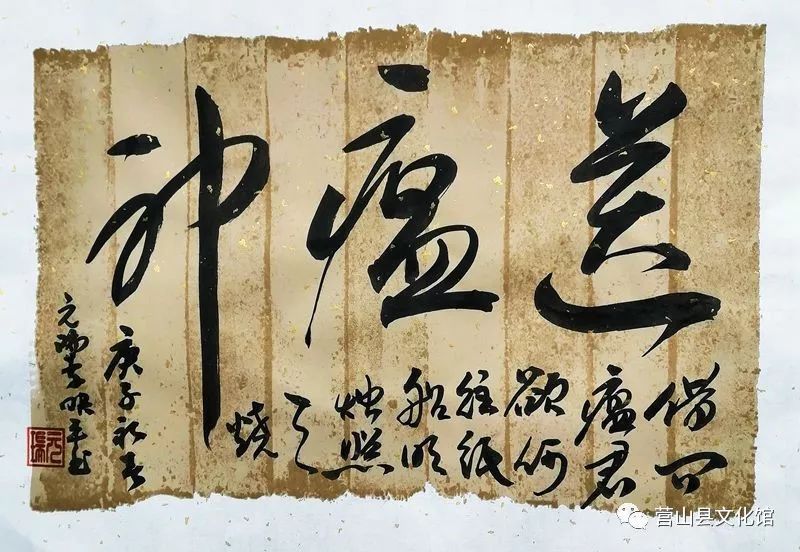 送瘟神
借问
瘟君
欲何
往纸
船明
烛照
天
烧
庚子初春
元
书
营山县文化馆